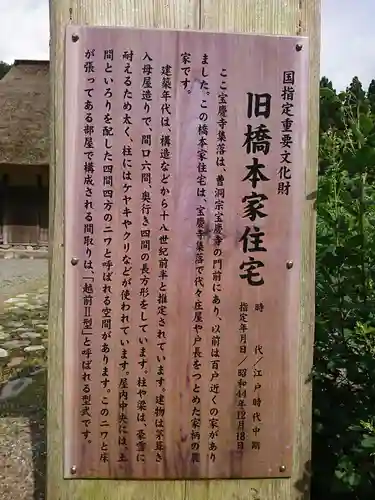 国指定重要文化財
旧橋本家住宅
時　代/江戸時代中期
指定年月日/昭和44年12月18日
ここ宝慶寺集落は、曹洞宗宝慶寺の門前にあり、以前は百戸近くの家があり
ました。この橋本家住宅は、宝慶寺集落で代々庄屋や戸長をつとめた家柄の農
家です。
建築年代は、構造などから十八世紀前半と推定されています。建物は茅葺き
入母屋造りで、間口六間、奥行き四間の長方形をしています。柱や梁は、豪雪に
耐えるため太く、柱にはケヤキやクリなどが使われています。屋内中央には、土
間といろりを配した四間四方のニワと呼ばれる空間があります。このニワと床
が張ってある部屋で構成される間取りは、「越前Ⅱ型」と呼ばれる型式です。